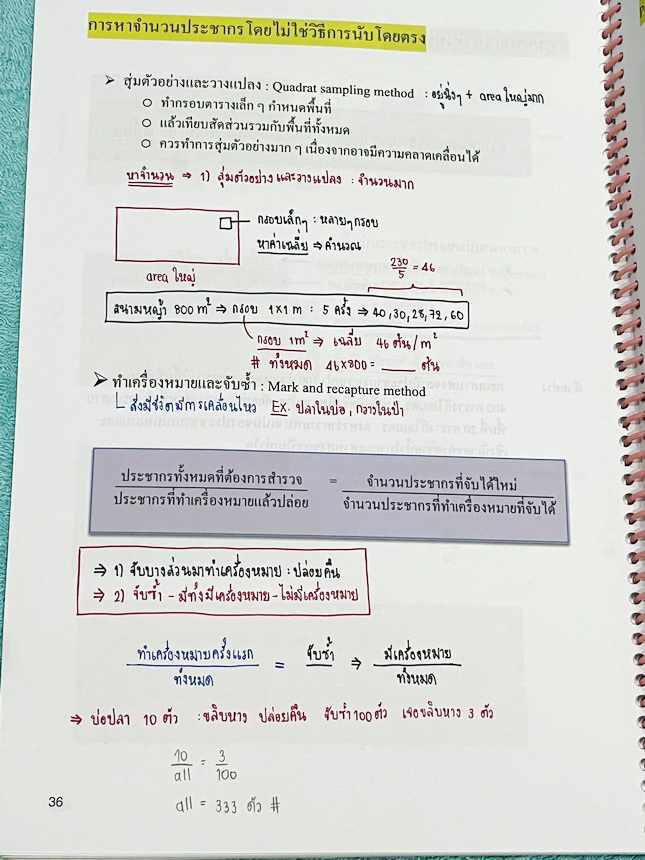 การหาจำนวนประชากรโดยไม่ใช่วิธีการนับโดยตรง
➤ สุ่มตัวอย่างและวางแปลง : Quadrat sampling method : อยู่นิ่งๆ + area ใหญ่มาก
○ ทำกรอบตารางเล็ก ๆ กำหนดพื้นที่
○ แล้วเทียบสัดส่วนรวมกับพื้นที่ทั้งหมด
○ ควรทำการสุ่มตัวอย่างมาก ๆ เนื่องจากอาจมีความคลาดเคลื่อนได้
หาจำนวน ⇒ 1) สุ่มตัวอย่างและวางแปลง : จำนวนมาก
กรอบเล็กๆ : หลายๆกรอบ
หาค่าเฉลี่ย ⇒ คำนวณ
area ใหญ่
230/5 = 46
สนามหญ้า 800 m² ⇒ กรอบ 1×1 m : 5 ครั้ง ⇒ 40, 30, 28, 72, 60
กรอบ 1m² ⇒ เฉลี่ย 46 ต้น/m²
# ทั้งหมด 46×800 = ____ ต้น
➤ ทำเครื่องหมายและจับซ้ำ : Mark and recapture method
สิ่งมีชีวิตมีการเคลื่อนไหว EX. ปลาในบ่อ, กวางในป่า
ประชากรทั้งหมดที่ต้องการสำรวจ = จำนวนประชากรที่จับได้ใหม่
ประชากรที่ทำเครื่องหมายแล้วปล่อย จำนวนประชากรที่ทำเครื่องหมายที่จับได้
⇒ 1) จับบางส่วนมาทำเครื่องหมาย : ปล่อยคืน
⇒ 2) จับซ้ำ - มีทั้งมีเครื่องหมาย - ไม่มีเครื่องหมาย
ทำเครื่องหมายครั้งแรก = จับซ้ำ ⇒ มีเครื่องหมาย
ทั้งหมด ทั้งหมด
⇒ บ่อปลา 10 ตัว : ขลิบหาง ปล่อยคืน จับซ้ำ 100 ตัว เจอขลิบหาง 3 ตัว
10/all = 3/100
all = 333 ตัว #
36